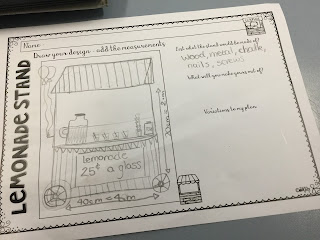 LEMONADE STAND
Name
Draw your design - add the measurements
lemonade
25¢ a glass
40cm = 4cm
List what the stand would be made of?
wood, metal, chalk,
nails, screws
What will you make yours out of?
Variations to my plan